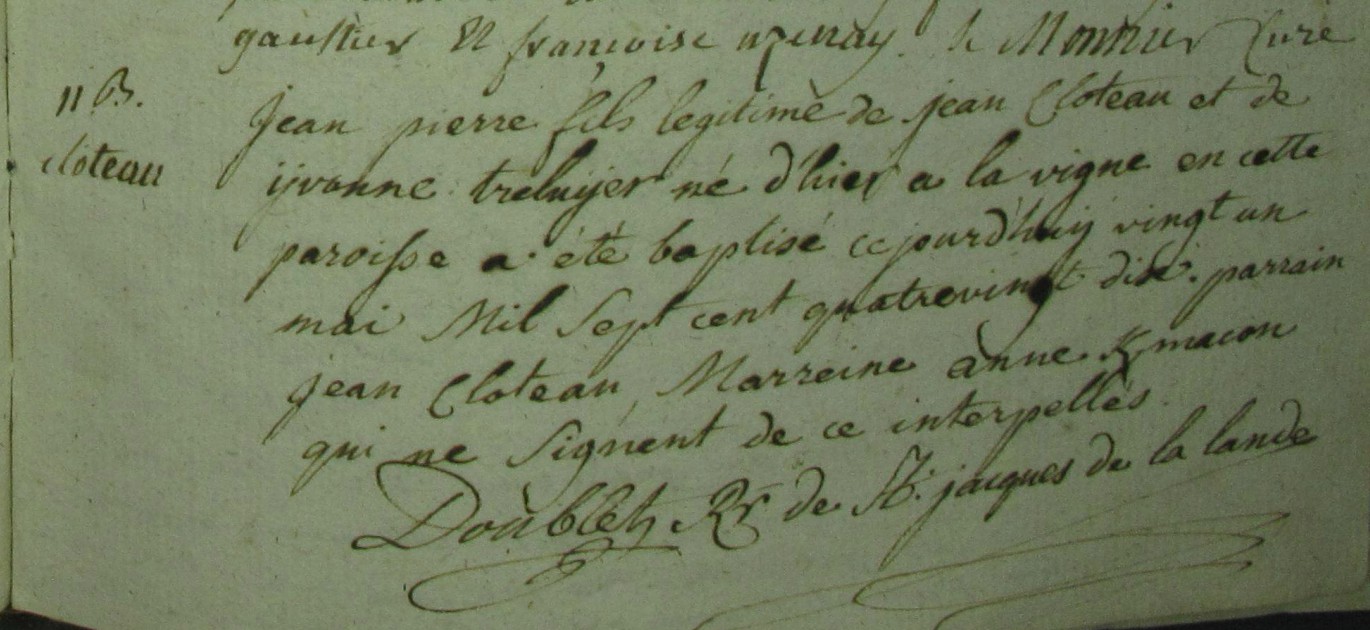 gaultier Et françoise le Monnier Curé
11 B.
cloteau
jean pierre fils legitime de jean Cloteau et de
yvonne treluyer né d'hier a la vigne en cette
paroisse a été baptisé ce jourd'huy vingt un
mai Mil Sept cent quatrevingt dix. parrain
jean Cloteau, Marreine anne Kmacon
qui ne Signent de ce interpellés.
Doubletz Rr de St. jacques de la lande